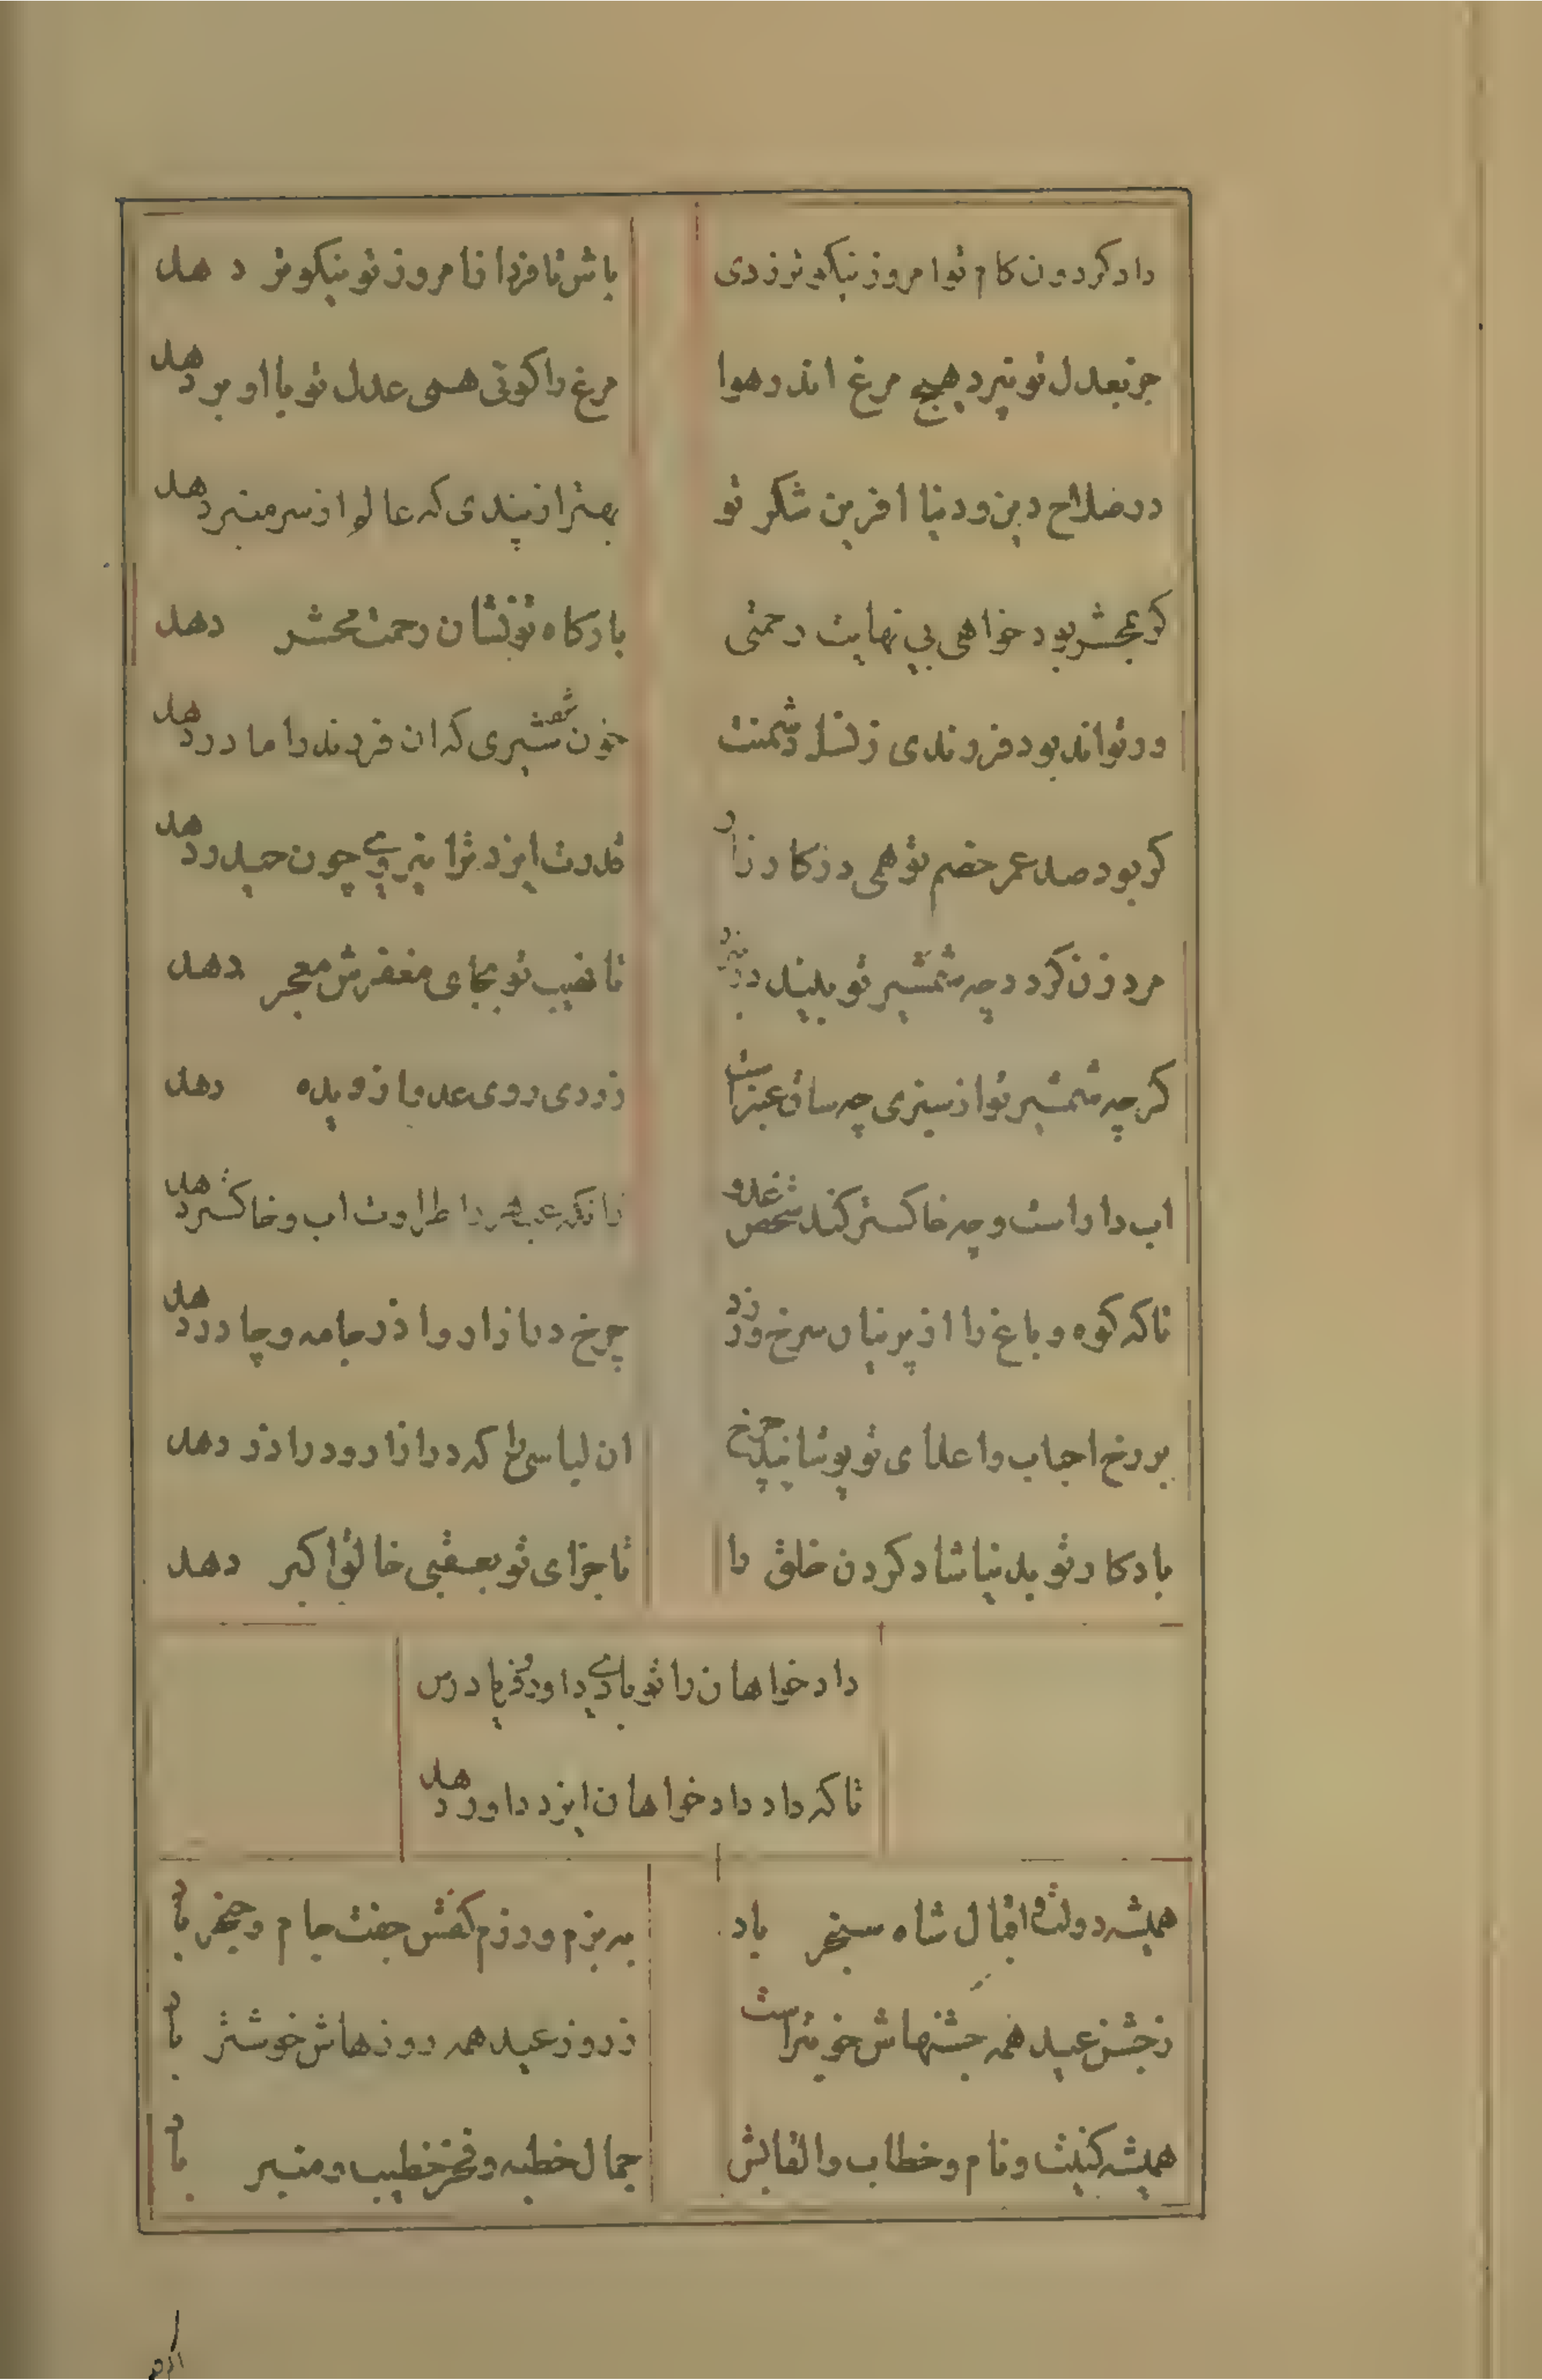 داد کردون کام تو امروز نیکوتر ز دی
باش تا فردا ز امروز تو نیکوتر دهد
جز بعدل تو نپرد هیچ مرغ اندر هوا
مرغ را کوئی همی عدل تو با او پر دهد
در صلاح دین و دنیا افرین شکر تو
بهتر از پندی که عالم از سر منبر دهد
کر بمحشر بود خواهی بی نهایت رحمتی
بارکاه تو نشان رحمت محشر دهد
ور تواند بود فرزندی ز نسل دشمنت
خون شود شیری که ان فرزند را مادر دهد
کر بود صد عمر خصم تو همی در کارزار
قدرت ایزد ترا نیروی چون حیدر دهد
مرد زن کردد چه شمشیر تو بیند در نبرد
تا نهیب تو بجای مغفرش معجر دهد
کرچه شمشیر تو از سبزی چه ساق عبهر است
زردی روی عدو از دیده دهد
اب دار است و چه خاکستر کند شخص عدو
زانکه عبهر را طراوت اب و خاکستر دهد
تا که کوه و باغ را از پرنیان سرخ و زرد
چرخ در ازار و اذر جامه و چادر دهد
بر رخ احباب و اعدای تو پوشاند چرخ
ان لباسی را که در ازار و در اذر دهد
باد کار تو بدنیا شاد کردن خلق را
تا جزای تو بعقبی خالق اکبر دهد
داد خواهان را تو بادی داور و فریادرس
تا که داد داد خواهان ایزد داور دهد
همیشه دولت و اقبال شاه سنجر باد
به بزم و رزم کفش جفت جام و خنجر باد
ز جشن عید همه جشنهاش خوبتر است
ز روز عید همه روزهاش خوشتر باد
همیشه کنیت و نام و خطاب و القابش
جمال خطبه و فخر خطیب و منبر باد